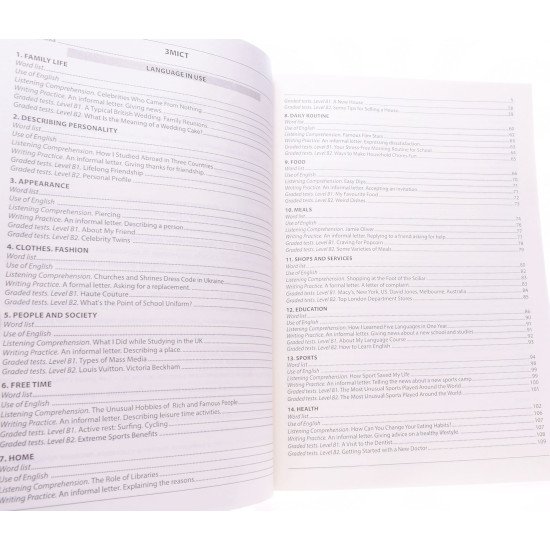 ЗМІСТ
LANGUAGE IN USE
1. FAMILY LIFE
Word list
Use of English
Listening Comprehension. Celebrities Who Came From Nothing
Writing Practice. An informal letter. Giving news
Graded tests. Level B1. A Typical British Wedding. Family Reunions
Graded tests. Level B2. What Is the Meaning of a Wedding Cake?
2. DESCRIBING PERSONALITY
Word list
Use of English
Listening Comprehension. How I Studied Abroad in Three Countries
Writing Practice. An informal letter. Giving thanks for friendship.
Graded tests. Level B1. Lifelong Friendship
Graded tests. Level B2. Personal Profile
3. APPEARANCE
Word list
Use of English
Listening Comprehension. Piercing
Writing Practice. An informal letter. Describing a person
Graded tests. Level B1. About My Friend
Graded tests. Level B2. Celebrity Twins
4. CLOTHES. FASHION
Word list
Use of English
Listening Comprehension. Churches and Shrines Dress Code in Ukraine
Writing Practice. A formal letter. Asking for a replacement
Graded tests. Level B1. Haute Couture
Graded tests. Level B2. What's the Point of School Uniform?
5. PEOPLE AND SOCIETY
Word list
Use of English
Listening Comprehension. What I Did while Studying in the UK
Writing Practice. An informal letter. Describing a place
Graded tests. Level B1. Types of Mass Media
Graded tests. Level B2. Louis Vuitton. Victoria Beckham
6. FREE TIME
Word list
Use of English
Listening Comprehension. The Unusual Hobbies of Rich and Famous People
Writing Practice. An informal letter. Describing leisure time activities
Graded tests. Level B1. Active rest: Surfing. Cycling
Graded tests. Level B2. Extreme Sports Benefits
7. HOME
Word list
Use of English
Listening Comprehension. The Role of Libraries
Writing Practice. An informal letter. Explaining the reasons
Graded tests. Level B1. A New House
Graded tests. Level B2. Some Tips for Selling a House
8. DAILY ROUTINE
Word list
Use of English
Listening Comprehension. Famous Film Stars
Writing Practice. An informal letter. Expressing dissatisfaction
Graded tests. Level B1. Your Stress-Free Morning Routine for School
Graded tests. Level B2. Ways to Make Household Chores Fun
9. FOOD
Word list
Use of English
Listening Comprehension. Easy Dips
Writing Practice. An informal letter. Accepting an invitation
Graded tests. Level B1. My Favourite Food
Graded tests. Level B2. Weird Dishes
10. MEALS
Word list
Use of English
Listening Comprehension. Jamie Oliver
Writing Practice. An informal letter. Replying to a friend asking for help
Graded tests. Level B1. Craving for Popcorn
Graded tests. Level B2. Some Varieties of Meals
11. SHOPS AND SERVICES
Word list
Use of English
Listening Comprehension. Shopping at the Foot of the Stillar
Writing Practice. A letter of complaint
Graded tests. Level B1. Macy's, New York, US. David Jones, Melbourne, Australia
Graded tests. Level B2. Top London Department Stores
12. EDUCATION
Word list
Use of English
Listening Comprehension. How I Learned Five Languages in One Year
Writing Practice. An informal letter. Giving news about a new school and studies
Graded tests. Level B1. About My Language Course
Graded tests. Level B2. How to Learn English
13. SPORTS
Word list
Use of English
Listening Comprehension. How Sport Saved My Life
Writing Practice. An informal letter. Telling the news about a new sports camp
Graded tests. Level B1. The Most Unusual Sports Played Around the World
Graded tests. Level B2. The Most Unusual Sports Played Around the World
14. HEALTH
Word list
Use of English
Listening Comprehension. How Can You Change Your Eating Habits?
Writing Practice. An informal letter. Giving advice on a healthy lifestyle
Graded tests. Level B1. A Visit to the Dentist
Graded tests. Level B2. Getting Started with a New Doctor!